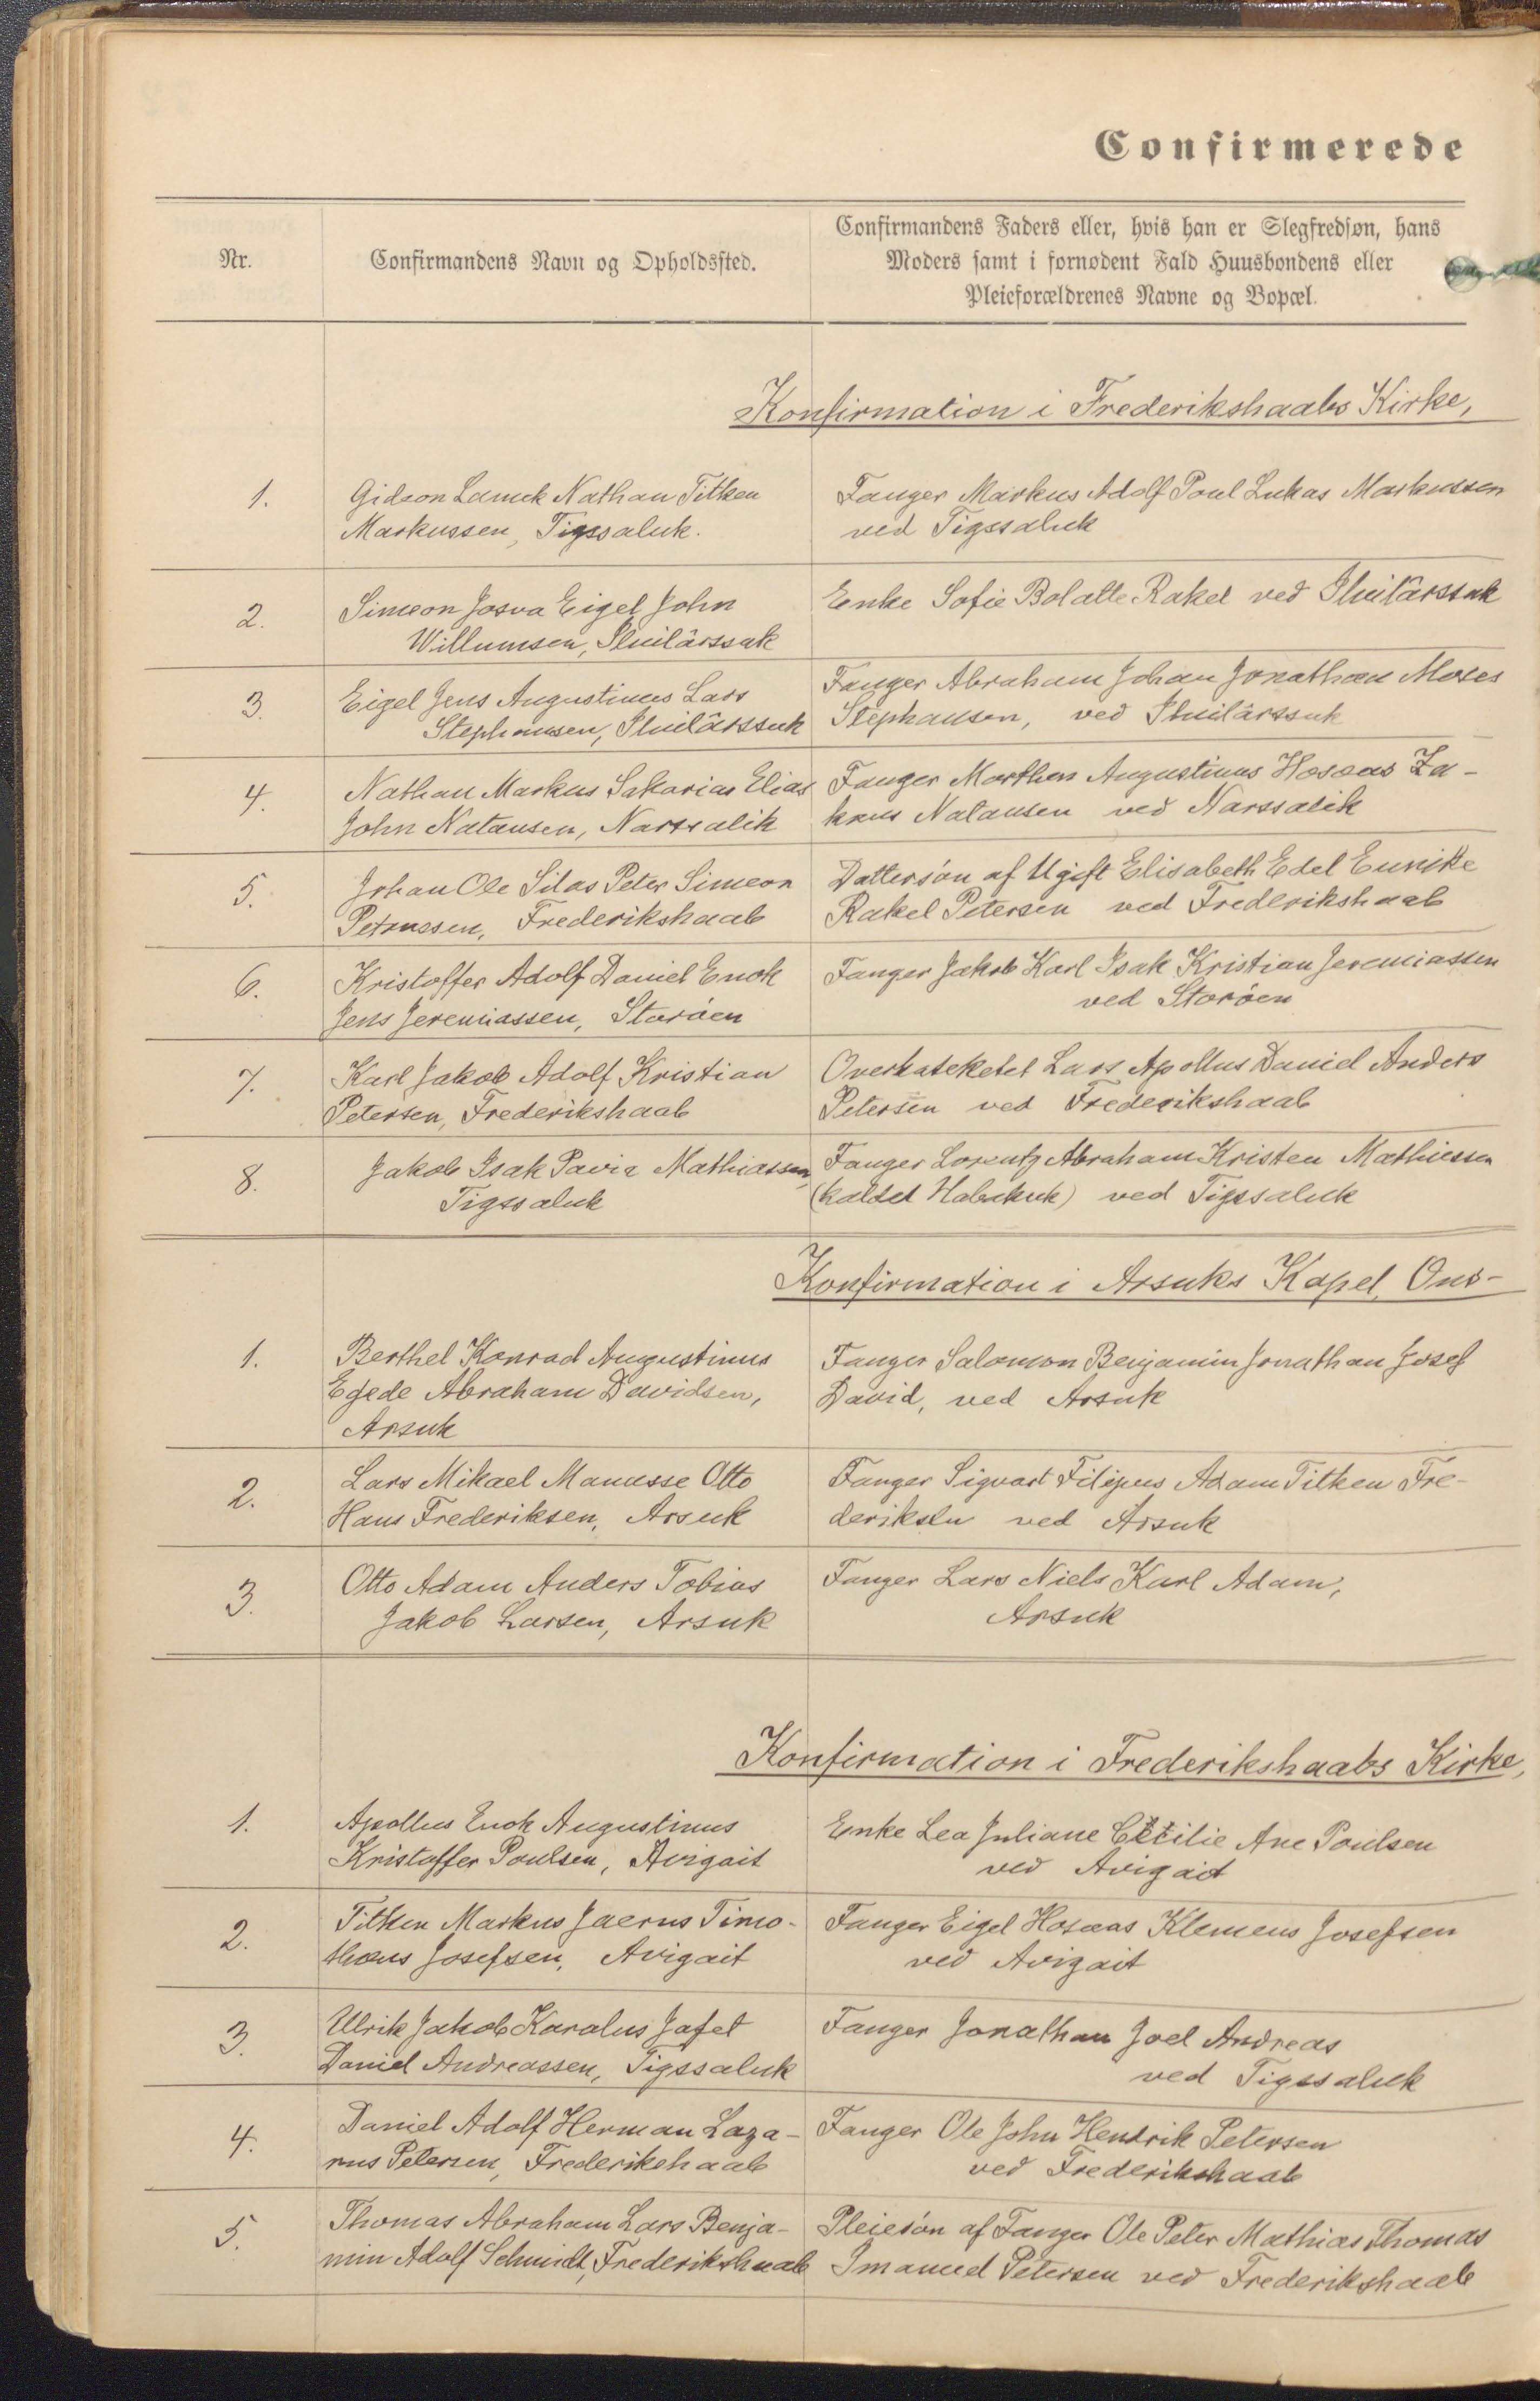 Confirmerede
Nr.
Confirmandens Navn og Opholdssted.
Confirmandens Faders eller, hvis han er Slegfredsøn, hans
Moders samt i fornødent Fald Huusbondens eller
Pleieforældrenes Navne og Bopæl.
Konfirmation i Frederikshaabs Kirke,
1.
Gideon Lamek Nathan Titken
Markussen, Tigssaluk.
Fanger Markus Adolf Poul Lukas Markussen
ved Tigssaluk
2.
Simeon Josva Eigel John
Willumsen, Iluilârssuk
Enke Sofie Bolatte Rakel ved Iluilârssuk
3.
Eigel Jens Augustinus Lars
Stephansen, Iluilârssuk
Fanger Abraham Johan Jonathan Moses
Stephansen, ved Iluilârssuk
4.
Nathan Markus Sakarias Elias
John Natansen, Narssalik
Fanger Marthen Augustinus Hoseas Za-
kæus Natansen ved Narssalik
5.
Johan Ole Silas Peter Simeon
Petrussen, Frederikshaab
Dattersön af Ugift Elisabeth Edel Eunike
Rakel Petersen ved Frederikshaab
6.
Kristoffer Adolf Daniel Enok
Jens Jeremiassen, Storöen
Fanger Jakob Karl Isak Kristian Jeremiassen
ved Storöen
7.
Karl Jakob Adolf Kristian
Petersen, Frederikshaab
Overkateketet Lars Apollus Daniel Anders
Petersen ved Frederikshaab
8.
Jakob Isak Pavia Mathiassen,
Tigssaluk
Fanger Lorentz Abraham Kristen Mathiessen
(kaldet Habakuk) ved Tigssaluk
Konfirmation i Arsuks Kapel, Ons-
1.
Berthel Konrad Augustinus
Egede Abraham Davidsen,
Arsuk
Fanger Salomon Benjamin Jonathan Josef
David, ved Arsuk
2.
Lars Mikael Manasse Otto
Hans Frederiksen, Arsuk
Fanger Sigvart Filipus Adam Titken Fre-
deriksen ved Arsuk
3.
Otto Adam Anders Tobias
Jakob Larsen, Arsuk
Fanger Lars Niels Karl Adam,
Arsuk
Konfirmation i Frederikshaabs Kirke,
1.
Apollus Enok Augustinus
Kristoffer Poulsen, Avigait
Enke Lea Juliane Cecilie Ane Poulsen
ved Avigait
2.
Titken Markus Jaerus Timo-
thæus Josefsen, Avigait
Fanger Eigel Hoseas Klemens Josefsen
ved Avigait
3.
Ulrik Jakob Karolus Jafet
Daniel Andreassen, Tigssaluk
Fanger Jonathan Joel Andreas
ved Tigssaluk
4.
Daniel Adolf Herman Laza-
rus Petersen, Frederikshaab
Fanger Ole John Hendrik Petersen
ved Frederikshaab
5.
Thomas Abraham Lars Benja-
min Adolf Schmidt, Frederikshaab
Pleiesön af Fanger Ole Peter Mathias Thomas
Imanuel Petersen ved Frederikshaab